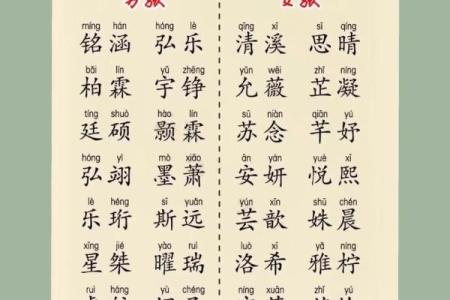 míng hán hóng lè qīng xī sī qíng
铭涵 弘乐 清溪 思晴
bǎi lín yǔ zhēng yǔn wēi zhǐ níng
柏霖 宇铮 允薇 芷凝
tíng shuò hào lín sū niàn qiān yú
廷硕 颢霖 苏念 芊妤
hóng yì mò xiāo ān yán yuè xī
弘翊 墨萧 安妍 悦熙
lè héng sī yuǎn yún xīn shū chén
乐珩 斯远 芸歆 姝晨
xīng jié yào ruì luò xī yǎ níng
星桀 曜瑞 洛希 雅柠